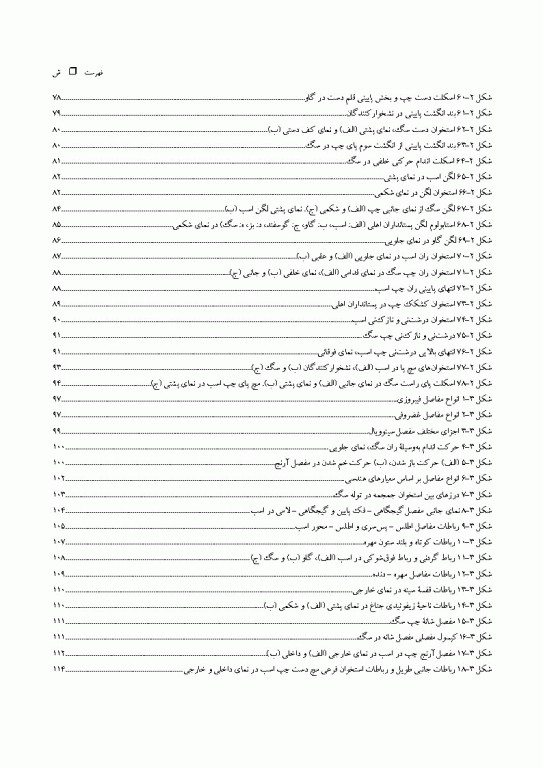 فهرست ❐ ش
شکل ۲-۶۰ اسکلت دست چپ و بخش پایینی قلم دست در گاو ............ ۷۸
شکل ۲-۶۱ بند انگشت پایینی در نشخوارکنندگان ............ ۷۹
شکل ۲-۶۲ استخوان دست سگ، نمای پشتی (الف) و نمای کف دستی (ب) ............ ۸۰
شکل ۲-۶۳ بند انگشت پایینی از انگشت سوم پای چپ در سگ ............ ۸۰
شکل ۲-۶۴ اسکلت اندام حرکتی خلفی در سگ ............ ۸۱
شکل ۲-۶۵ لگن اسب در نمای پشتی ............ ۸۲
شکل ۲-۶۶ استخوان لگن در نمای شکمی ............ ۸۲
شکل ۲-۶۷ لگن سگ از نمای جانبی چپ (الف) و شکمی (ج). نمای پشتی لگن اسب (ب) ............ ۸۴
شکل ۲-۶۸ استابولوم لگن پستانداران اهلی (الف: اسب، ب: گاو، ج: گوسفند، د: بز، ه: سگ) در نمای شکمی ............ ۸۵
شکل ۲-۶۹ لگن گاو در نمای جلویی ............ ۸۶
شکل ۲-۷۰ استخوان ران اسب در نمای جلویی (الف) و عقبی (ب) ............ ۸۷
شکل ۲-۷۱ استخوان ران چپ سگ در نمای قدامی (الف)، نمای خلفی (ب) و جانبی (ج) ............ ۸۸
شکل ۲-۷۲ انتهای پایینی ران چپ اسب ............ ۸۸
شکل ۲-۷۳ استخوان کشکک چپ در پستانداران اهلی ............ ۸۹
شکل ۲-۷۴ استخوان درشت‌نی و نازک‌نی اسب ............ ۹۰
شکل ۲-۷۵ درشت‌نی و نازک‌نی چپ سگ ............ ۹۱
شکل ۲-۷۶ انتهای بالایی درشت‌نی چپ اسب، نمای فوقانی ............ ۹۱
شکل ۲-۷۷ استخوان‌های مچ پا در اسب (الف)، نشخوارکنندگان (ب) و سگ (ج) ............ ۹۳
شکل ۲-۷۸ اسکلت پای راست سگ در نمای جانبی (الف) و نمای پشتی (ب). مچ پای چپ اسب در نمای پشتی (ج) ............ ۹۴
شکل ۳-۱ انواع مفاصل فیبروزی ............ ۹۷
شکل ۳-۲ انواع مفاصل غضروفی ............ ۹۷
شکل ۳-۳ اجزای مختلف مفصل سینوویال ............ ۹۹
شکل ۳-۴ حرکت اندام به‌وسیلۀ ران سگ، نمای جلویی ............ ۱۰۰
شکل ۳-۵ (الف) حرکت باز شدن، (ب) حرکت خم شدن در مفصل آرنج ............ ۱۰۰
شکل ۳-۶ انواع مفاصل بر اساس معیارهای هندسی ............ ۱۰۲
شکل ۳-۷ درزهای بین استخوان جمجمه در توله سگ ............ ۱۰۳
شکل ۳-۸ نمای جانبی مفصل گیجگاهی - فک پایین و گیجگاهی - لامی در اسب ............ ۱۰۴
شکل ۳-۹ رباطات مفاصل اطلس - پس‌سری و اطلس - محور اسب ............ ۱۰۵
شکل ۳-۱۰ رباطات کوتاه و بلند ستون مهره ............ ۱۰۷
شکل ۳-۱۱ رباط گردنی و رباط فوق‌شوکی در اسب (الف)، گاو (ب) و سگ (ج) ............ ۱۰۸
شکل ۳-۱۲ رباطات مفاصل مهره - دنده ............ ۱۰۹
شکل ۳-۱۳ رباطات قفسۀ سینه در نمای خارجی ............ ۱۱۰
شکل ۳-۱۴ رباطات ناحیۀ زیفوئیدی جناغ در نمای پشتی (الف) و شکمی (ب) ............ ۱۱۰
شکل ۳-۱۵ مفصل شانۀ چپ سگ ............ ۱۱۱
شکل ۳-۱۶ کپسول مفصلی مفصل شانه در سگ ............ ۱۱۱
شکل ۳-۱۷ مفصل آرنج چپ در اسب در نمای خارجی (الف) و داخلی (ب) ............ ۱۱۲
شکل ۳-۱۸ رباطات جانبی طویل و رباطات استخوان فرعی مچ دست چپ اسب در نمای داخلی و خارجی ............ ۱۱۴